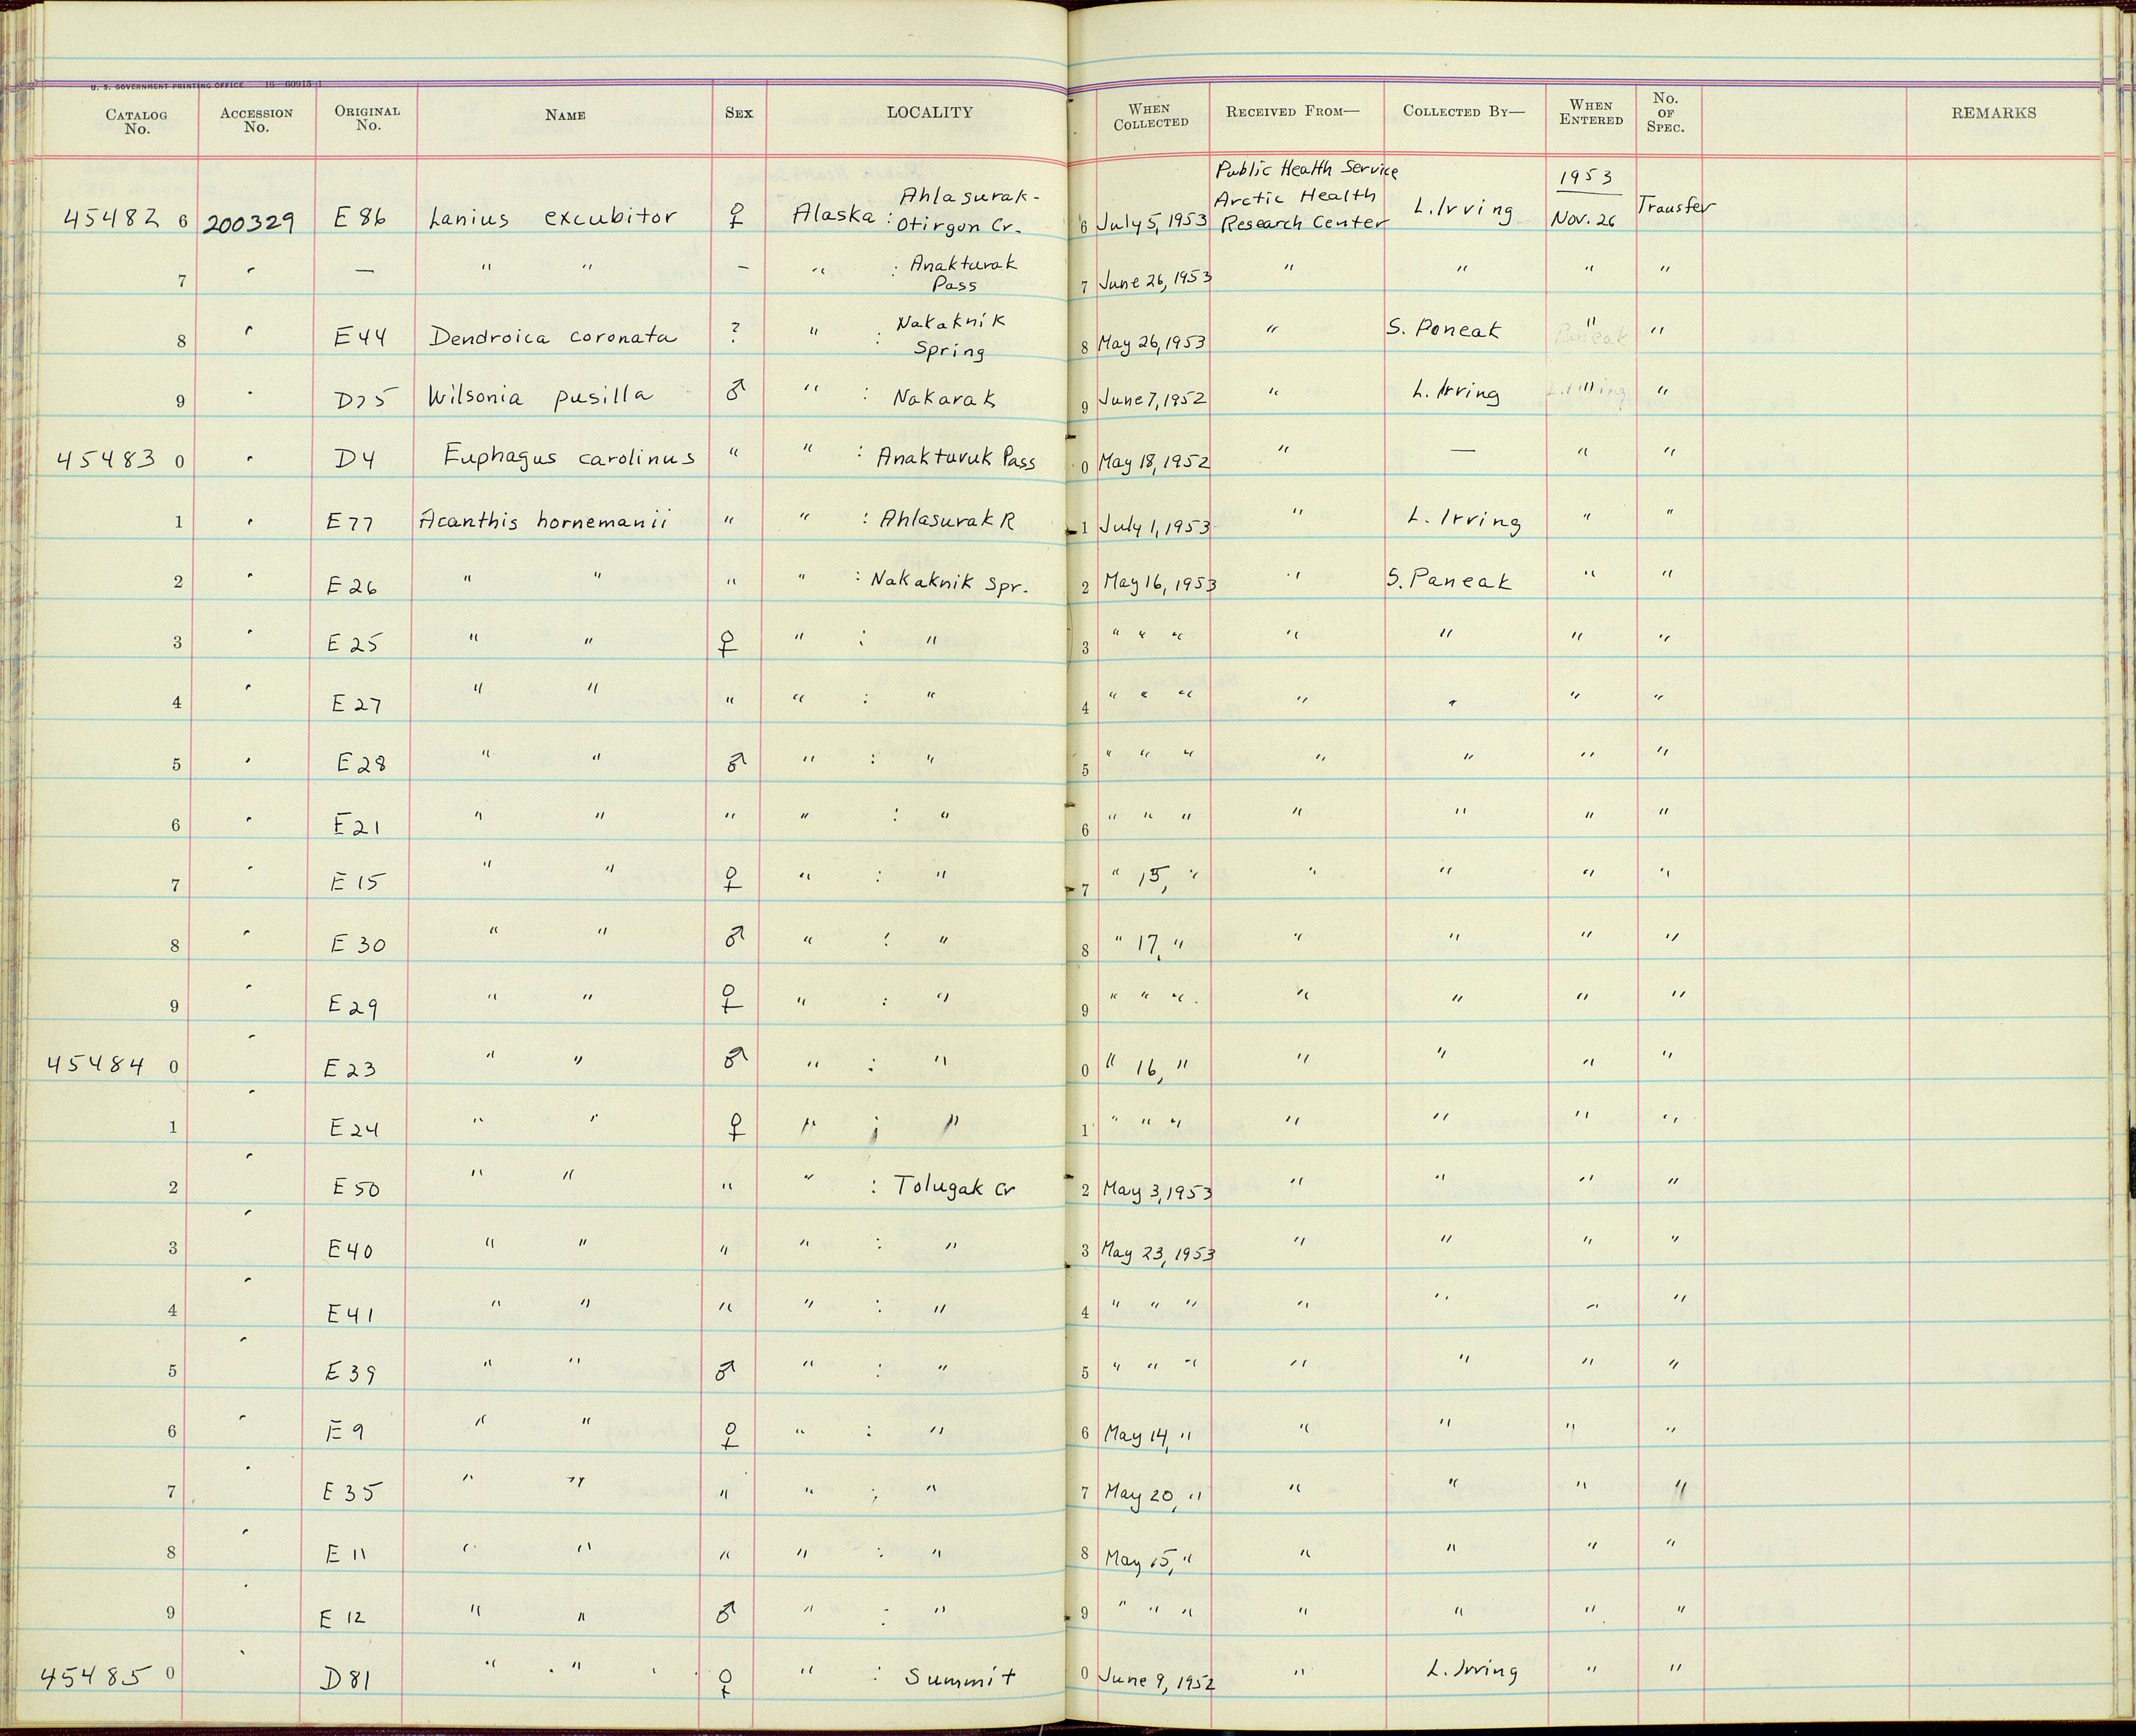 U. S. GOVERNMENT PRINTING OFFICE 16—60915-1
CATALOG No. ACCESSION No. ORIGINAL No. NAME SEX LOCALITY WHEN COLLECTED RECEIVED FROM— COLLECTED BY— WHEN ENTERED No. OF SPEC. REMARKS
45482 6 200329 E 86 Lanius excubitor ♀ Alaska : Ahlasurak- Otirgon Cr. 6 July 5, 1953 Public Health Service Arctic Health Research Center L. Irving 1953 Nov. 26 Transfer
7 " — " " — " : Anakturak Pass 7 June 26, 1953 " " " "
8 " E44 Dendroica coronata ? " : Nakaknik Spring 8 May 26, 1953 " S. Poneak " "
9 " D75 Wilsonia pusilla ♂ " : Nakarak 9 June 7, 1952 " L. Irving " "
45483 0 " D4 Euphagus carolinus " " : Anaktuvuk Pass 0 May 18, 1952 " — " "
1 " E77 Acanthis hornemanii " " : Ahlasurak R 1 July 1, 1953 " L. Irving " "
2 " E26 " " " " : Nakaknik Spr. 2 May 16, 1953 " S. Paneak " "
3 " E25 " " ♀ " : " 3 " " " " " " "
4 " E27 " " " " : " 4 " " " " " " "
5 " E28 " " ♂ " : " 5 " " " " " " "
6 " E21 " " " " : " 6 " " " " " " "
7 " E15 " " ♀ " : " 7 " 15, " " " " "
8 " E30 " " ♂ " : " 8 " 17, " " " " "
9 " E29 " " ♀ " : " 9 " " " " " " "
45484 0 " E23 " " ♂ " : " 0 " 16, " " " " "
1 " E24 " " ♀ " : " 1 " " " " " " "
2 " E50 " " " " : Tolugak Cr 2 May 3, 1953 " " " "
3 " E40 " " " " : " 3 May 23, 1953 " " " "
4 " E41 " " " " : " 4 " " " " " " "
5 " E39 " " ♂ " : " 5 " " " " " " "
6 " E9 " " ♀ " : " 6 May 14, " " " " "
7 " E35 " " " " : " 7 May 20, " " " " "
8 " E11 " " " " : " 8 May 15, " " " " "
9 " E12 " " ♂ " : " 9 " " " " " " "
45485 0 " D81 " " ♀ " : Summit 0 June 9, 1952 " L. Irving " "